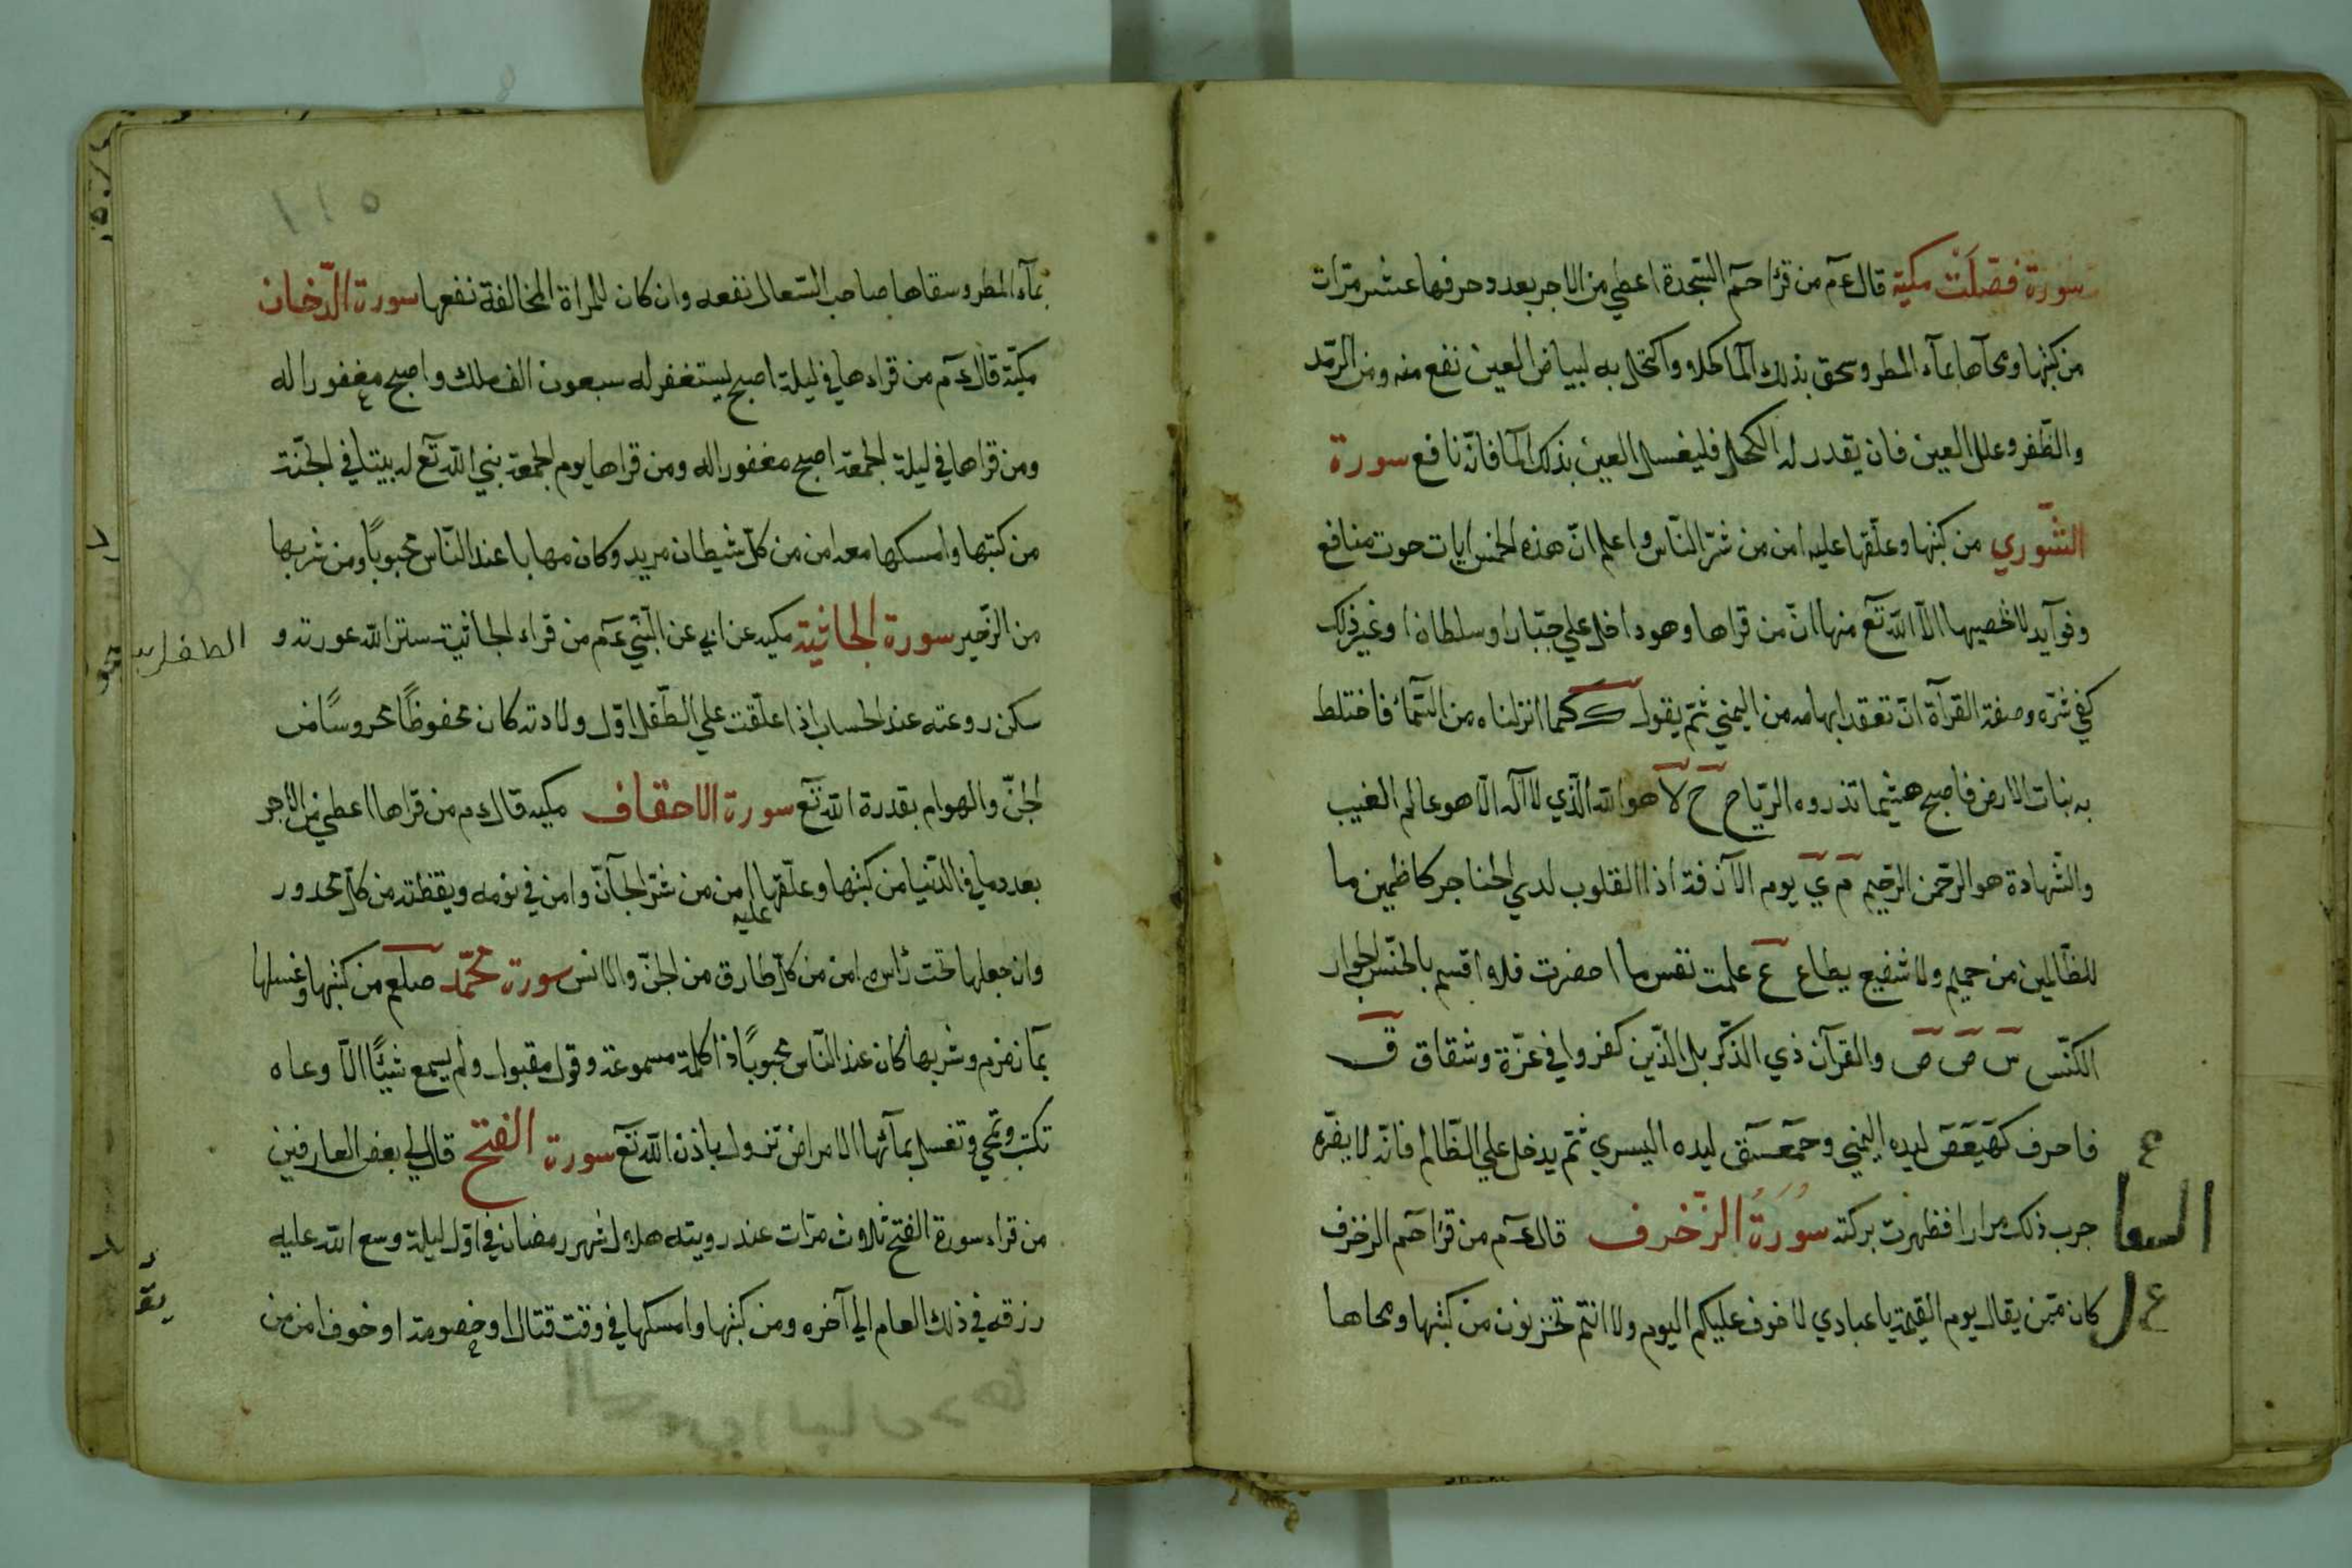 سورة فصّلت مكية قال عم من قرا حم السجدة اعطي من الاجر بعدد حرفها عشر مرّات
من كتبها ومحاها بمآء المطر وسحق بذلك المآ كحلا واكتحل به لبياض العين نفع منه ومن الرمد
والظّفر وعلل العين فان يقدر له الكحل فليغسل العين بذلك المآ فانّه نافع سورة
الشّوري من كتبها وعلّقها عليه امن من شرّ النّاس واعلم انّ هذه الخمس ايات حوت منافع
وفوآيد لا تحصيها الاّ الله تع منها انّ من قراها وهو داخل علي جبّار او سلطان او غير ذلك
كفي شرّه وصفة القرآة انّ تعقد ابهامه من اليمني ثمّ يقول ك كما انزلناه من السّمآء فاختلط
به نبات الارض فاصبح هشيما تذروه الريّاح ح لا هو الله الّذي لا آله الّا هو عالم الغيب
والشّهادة هو الرحمن الرحيم م ي يوم الآزفة اذ القلوب لدي الحناجر كاظمين ما
للظّالمين من حميم ولا شفيع يطاع ع علمت نفس ما احضرت فلا اقسم بالخنّس الجوار
الكنّس س ص ص والقرآن ذي الذّكر بل الّذين كفروا في عزّة وشقاق ق
فا حرف كهيعص ليده اليمني وحمعسق ليده اليسري ثمّ يدخل علي الظّالم فانّه لا يضرّه
جرب ذلك مرارا فظهرت بركته سُورَةُ الزّخرف قال عم من قرا حم الزخرف
كان ممّن يقال يوم القيمة يا عبادي لا خوف عليكم اليوم ولا انتم تحزنون من كتبها ومحاها
بمآء المطر وسقاها صاحب السّعال نفعه وان كان للمراة المخالفة نفعها سورة الدّخان
مكيّة قال عم من قراءها في ليلة اصبح يستغفر له سبعون الف ملك واصبح مغفورا له
ومن قراها في ليلة الجمعة اصبح مغفورا له ومن قراها يوم الجمعة بني الله تع له بيتا في الجنّة
من كتبها وامسكها معه امن من كلّ شيطان مريد وكان مهابا عند النّاس محبوبًا ومن شربها
من الزّحير سورة الجاثية مكيه عن ابي عن النّبي عم من قراء الجاثية ستر الله عورته و
سكن روعته عند الحساب اذا علّقت علي الطّفل اوّل ولادته كان محفوظًا محروسًا من
الجنّ والهوام بقدرة الله تع سورة الاحقاف مكيه قال عم من قراها اعطي من الاجر
بعدد ما في الدّنيا من كتبها وعلّقها عليه امن من شرّ الجآنّ وامن في نومه ويقظته من كلّ محدور
وان جعلها تحت رأسه امن من كلّ طارق من الجنّ والانس سورة محمّد صلعم من كتبها وغسلها
بمآ زمزم وشربها كان عند النّاس محبوبًا ذا كلمة مسموعة وقول مقبول ولم يسمع شيئًا الّا وعاه
تكتب وتمحي وتغسل بمآئها الامراض تزول باذن الله تع سورة الفتح قال لي بعض العارفين
من قراء سورة الفتح ثلاث مرّات عند رويته هلال شهر رمضان في اوّل ليلة وسع الله عليه
رزقه في ذلك العام الي آخره ومن كتبها وامسكها في وقت قتال او خصومة او خوف امن من